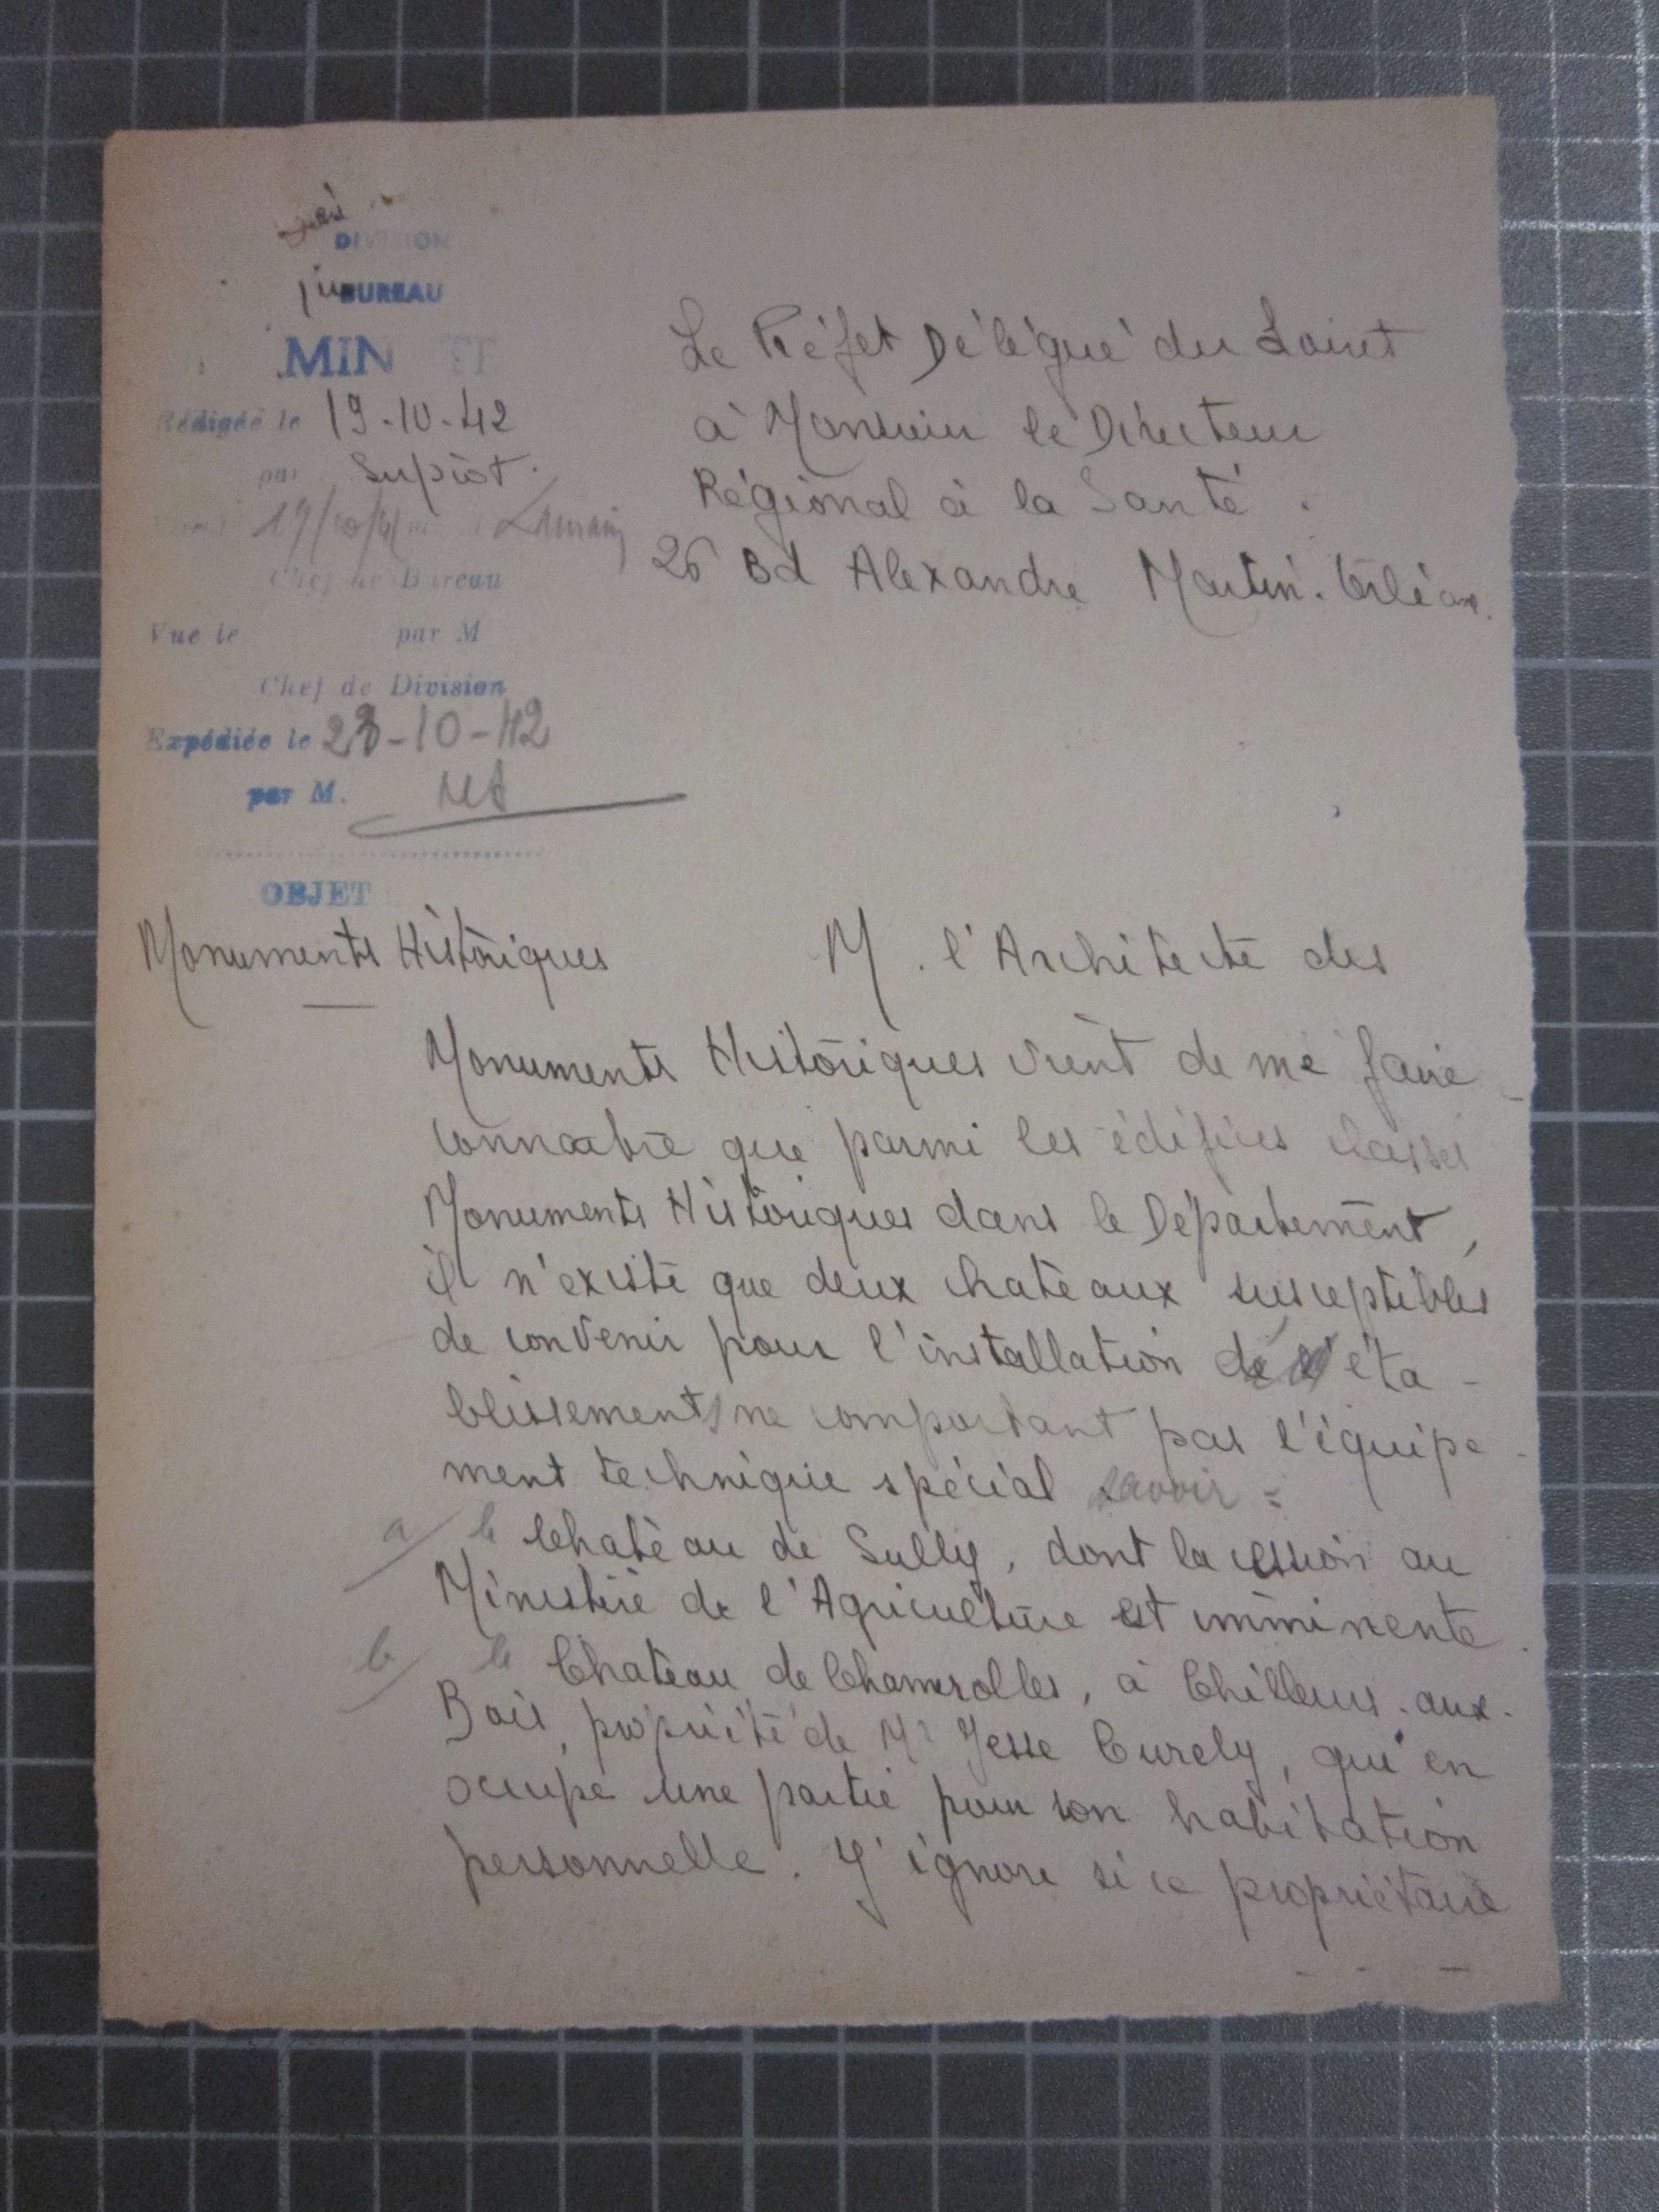 DIVISION
BUREAU
MINUTE
Rédigée le 19-10-42
par Supiot.
Chef de Bureau
Vue le par M
Chef de Division
Expédiée le 23-10-42
par M.
OBJET
Monuments Historiques
Le Préfet Délégué du Loiret
à Monsieur le Directeur
Régional à la Santé.
26 Bd Alexandre Martin. Orléans.
M. l'Architecte des
Monuments Historiques vient de me faire
connaître que parmi les édifices classés
Monuments Historiques dans le Département,
il n'existe que deux chateaux susceptibles
de convenir pour l'installation d'éta-
blissements ne comportant pas l'équipe-
ment technique spécial savoir :
a/ le Château de Sully, dont la cession au
Ministère de l'Agriculture est imminente.
b/ le Chateau de Chamerolles, à Chilleurs-aux-
Bois, propriété de Mr Jesse Curely, qui en
occupe une partie pour son habitation
personnelle. J'ignore si ce propriétaire